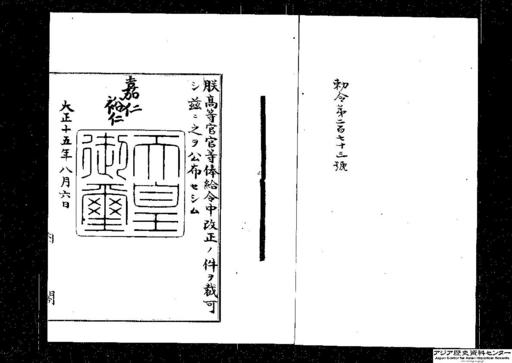 勅令第二百七十三號
朕高等官官等俸給令中改正ノ件ヲ裁可
シ茲ニ之ヲ公布セシム
嘉仁
裕仁
天皇御璽
大正十五年八月六日
内閣
アジア歴史資料センター
Japan Center for Asian Historical Records